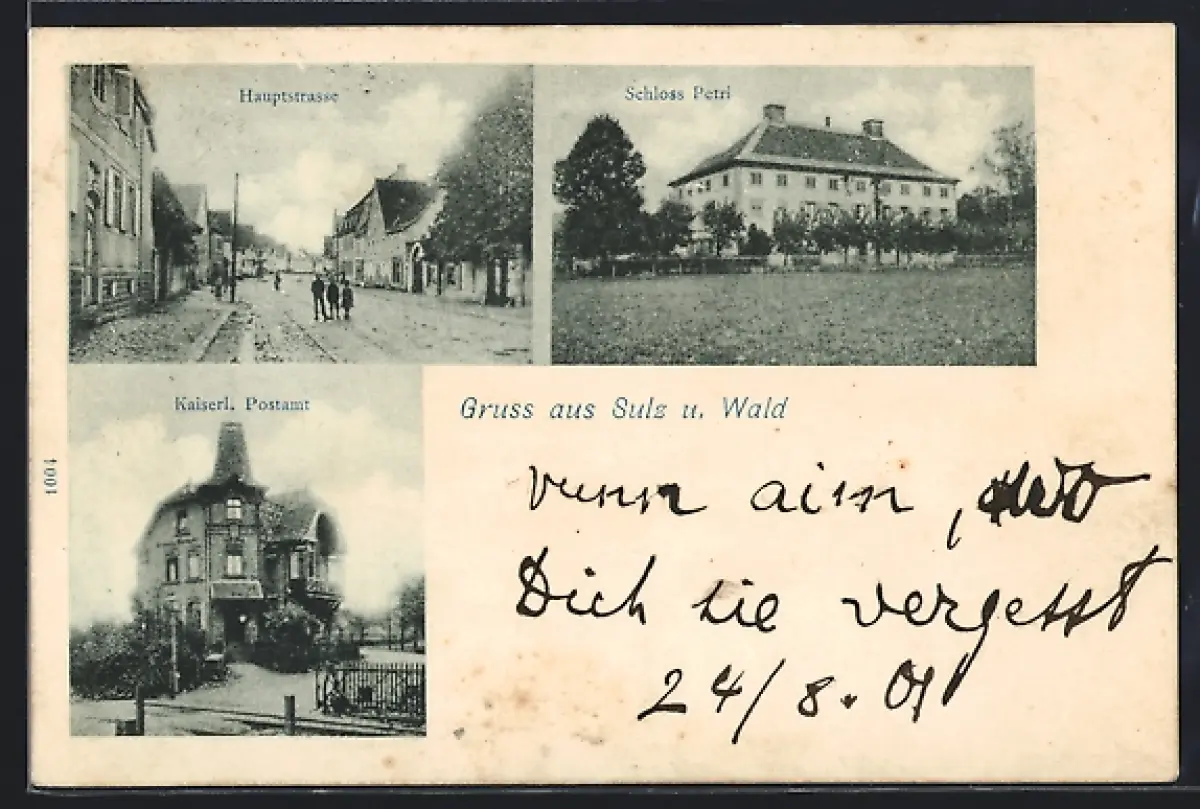 Hauptstrasse
Schloss Petri
Kaiserl. Postamt
Gruss aus Sulz u. Wald
1004
Dich nie vergesst
24/8. 01